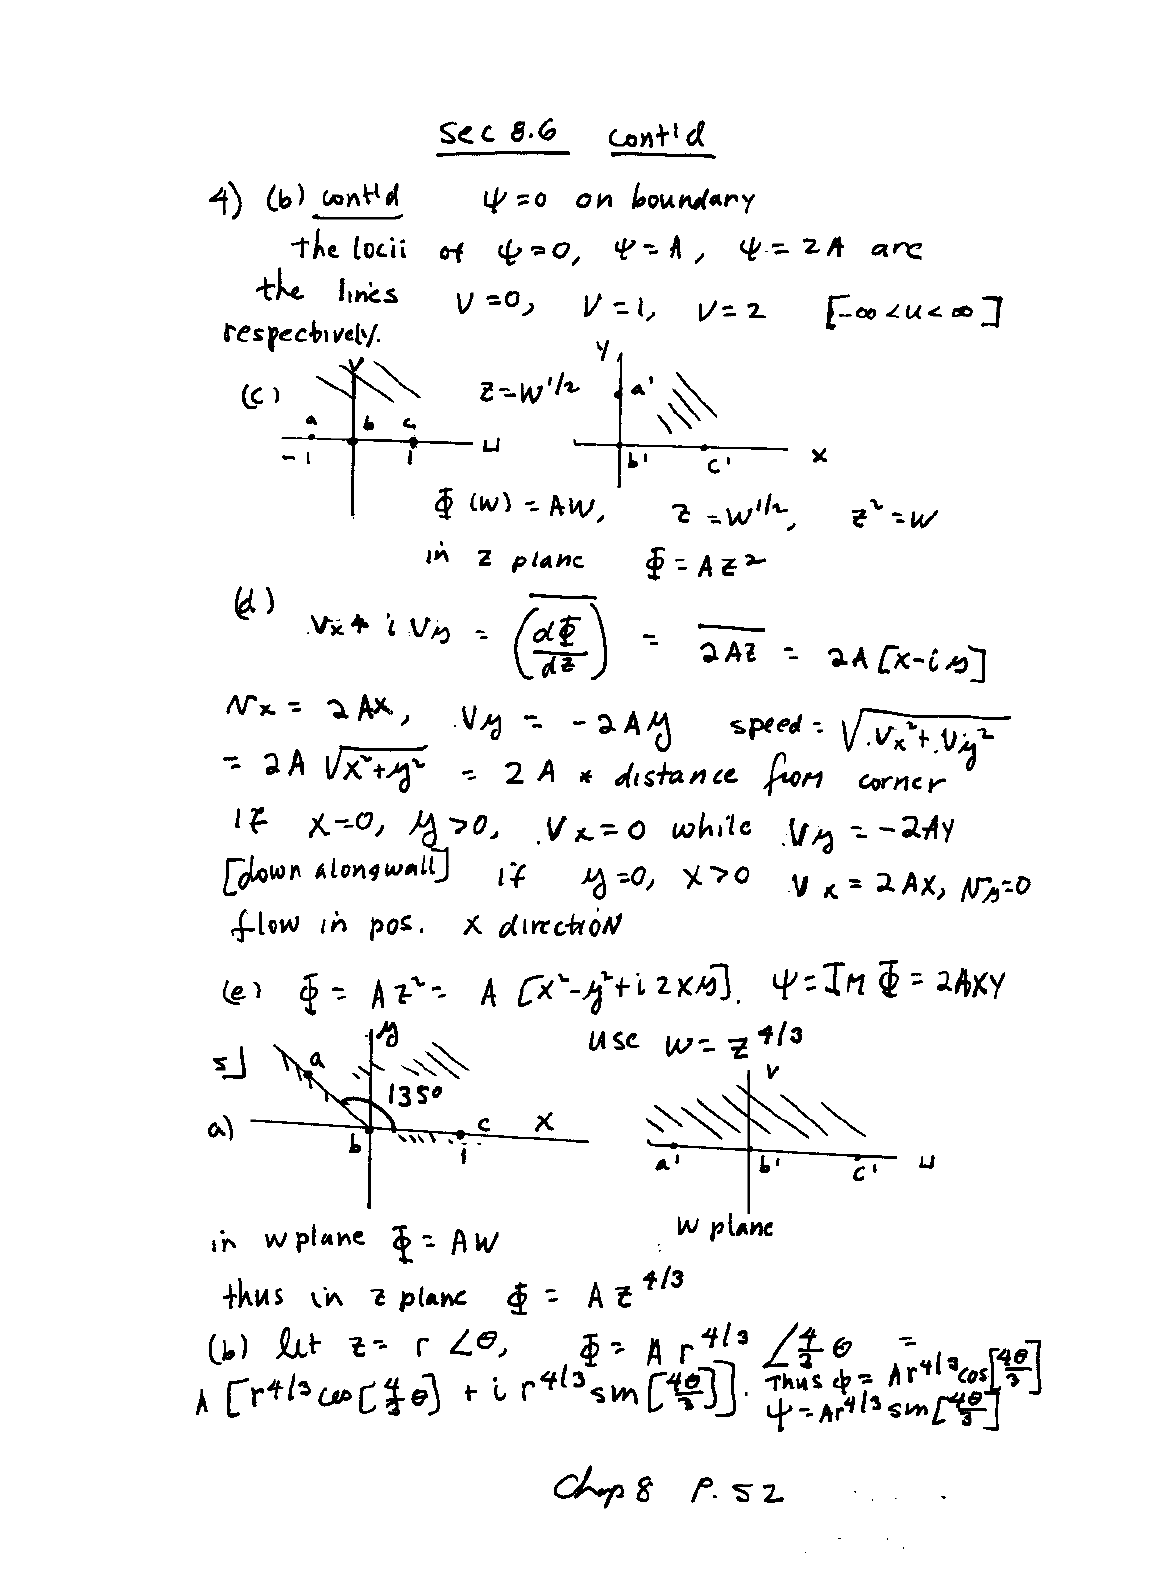 Sec 8.6 cont'd
4) (b) cont'd ψ=0 on boundary
the locii of ψ=0, ψ=A, ψ=2A are
the lines V=0, V=1, V=2 [-∞<u<∞]
respectively.
(c) V Z=W^1/2 Y
a b c a'
-1 1 U b' c' X
Φ(W) = AW, Z=W^1/2, Z²=W
in Z plane Φ=AZ²
(d) Vx + i Vy = \overline{(dΦ/dz)} = \overline{2AZ} = 2A[x-iy]
Vx = 2AX, Vy = -2Ay speed = √(Vx²+Vy²)
= 2A √(x²+y²) = 2A * distance from corner
If X=0, y>0, Vx=0 while Vy = -2AY
[down along wall] if y=0, X>0 Vx = 2AX, Vy=0
flow in pos. X direction
(e) Φ = AZ² = A [x²-y²+i2xy]. ψ=Im Φ = 2AXY
5] y use W= Z^4/3
a 135° V
a) b c 1 X a' b' c' U
in W plane Φ = AW W plane
thus in Z plane Φ = A Z^4/3
(b) let Z= r∠θ, Φ = A r^4/3 ∠4/3 θ =
A [r^4/3 cos[4/3 θ] + i r^4/3 sin[4θ/3]]. Thus φ = Ar^4/3 cos[4θ/3]
ψ=Ar^4/3 sin[4θ/3]
Chap 8 P. 52